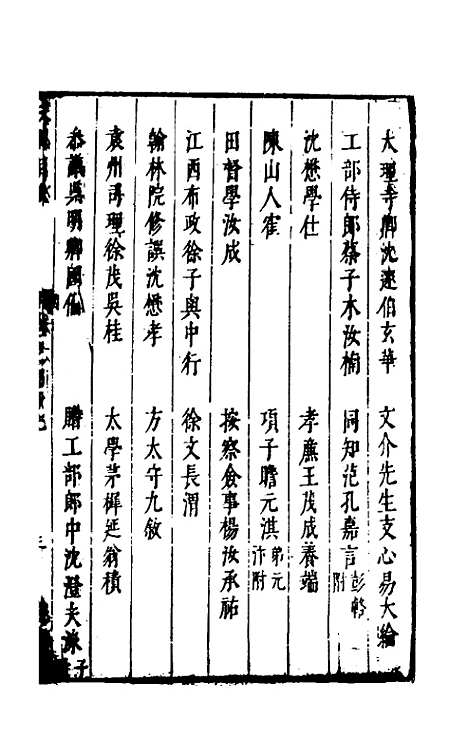 大理寺卿沈遜伯玄華　文介先生支心易大綸
工部侍郎蔡子木汝楠　同知范孔嘉言彭輅附
沈懋學仕　孝廉王茂成養端
陳山人寉　項子瞻元淇弟元汴附
田督學汝成　按察僉事楊汝承祐
江西布政徐子與中行　徐文長渭
翰林院修譔沈懋孝　方太守九敘
袁州司理徐茂吳桂　太學茅樨延翁積
叅議吳明卿國倫　贈工部郎中沈澄夫淶子